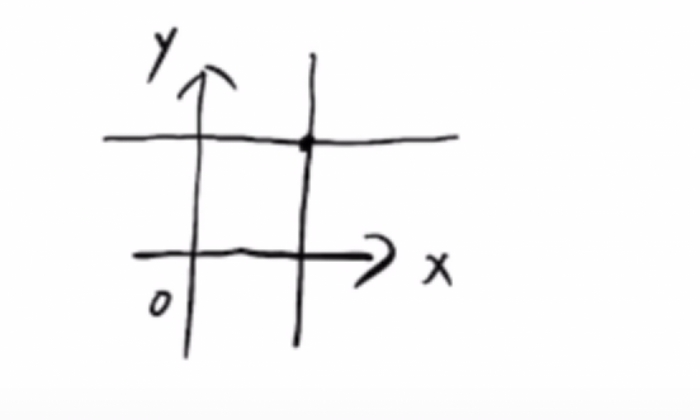 y
x
0